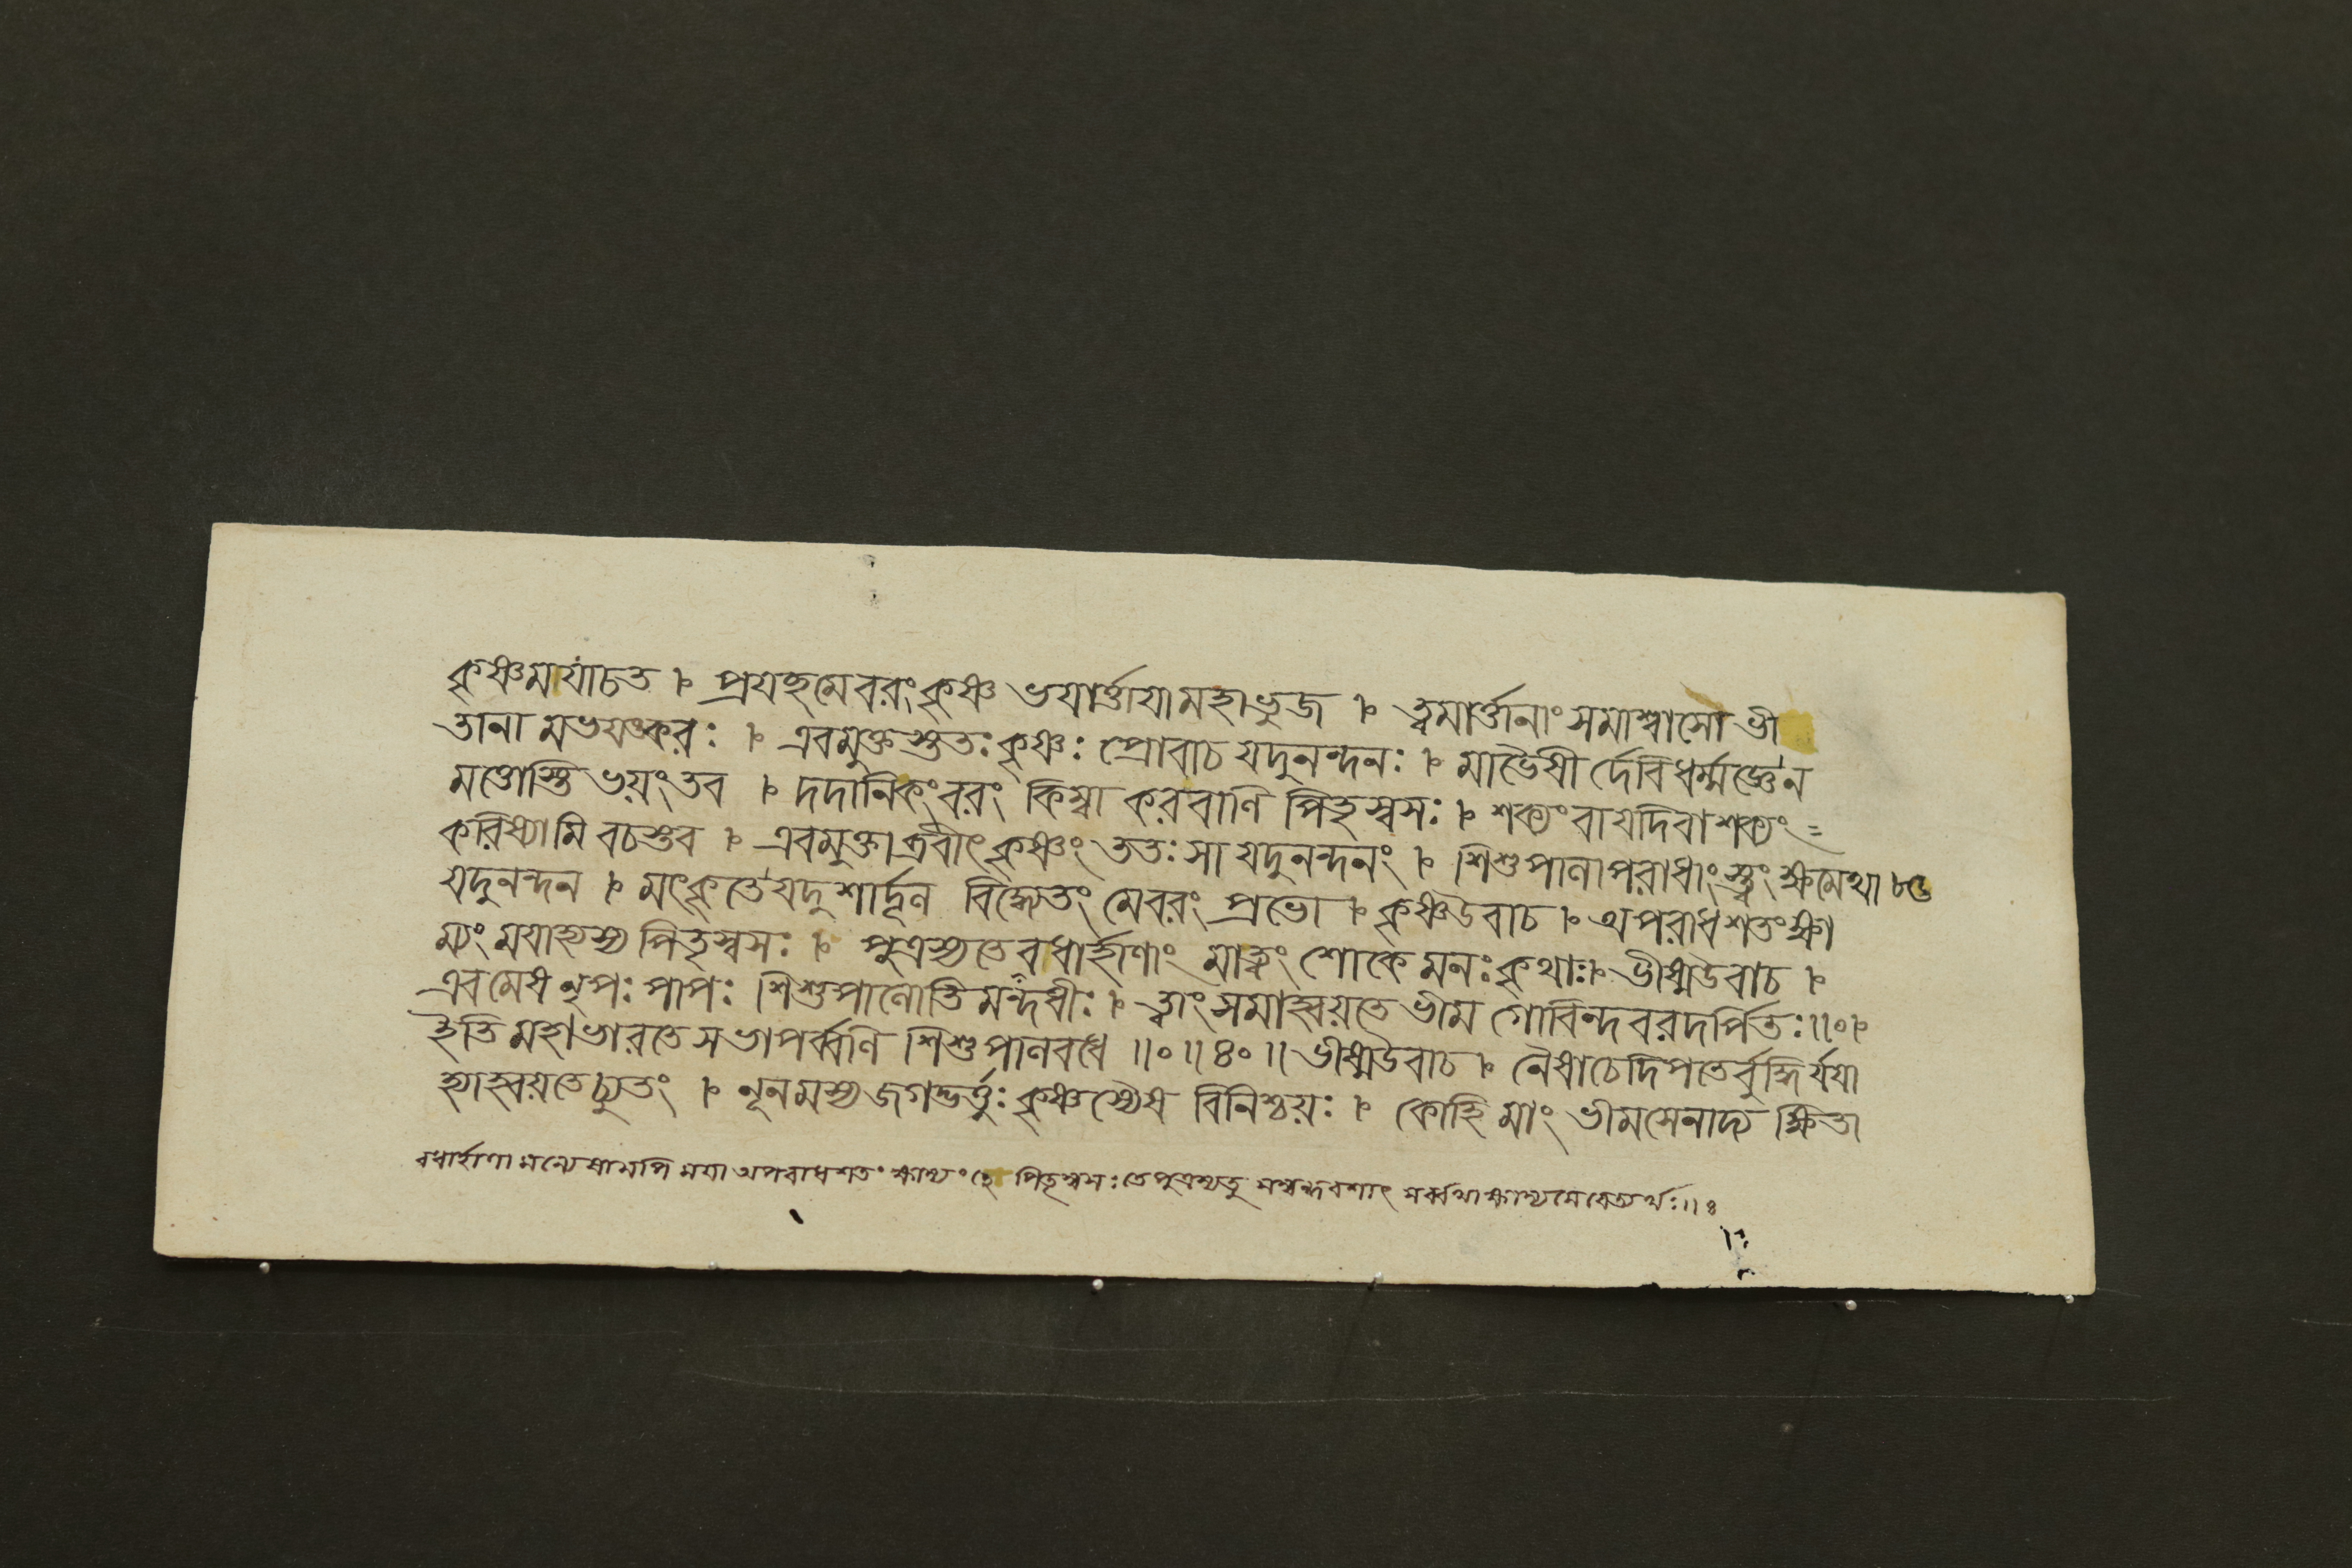 কৃষ্ণমযাচত । প্রযচ্ছমেবরংকৃষ্ণ ভযার্ত্তাযামহাভুজ । ত্বমার্ত্তানাংসমাশ্বাসোভী
তানামভযঙ্করঃ । এবমুক্তস্ততঃকৃষ্ণঃ প্রোবাচ যদুনন্দনঃ । মাভৈষী র্দেবিধর্ম্মজ্ঞেন
মত্তোস্তি ভয়ংতব । দদানিকংবরং কিম্বা করবাণি পিতৃস্বসঃ । শক্যংবাযদিবাশক্যং
করিষ্যামি বচস্তব । এবমুক্তাব্রবীৎকৃষ্ণং ততঃসা যদুনন্দনং । শিশুপালাপরাধাংস্ত্বং ক্ষমেথা
যদুনন্দন । মৎকৃতেযদুশার্দ্দূল বিদ্ধ্যেতং মেবরং প্রভো । কৃষ্ণউবাচ । অপরাধশতংক্ষা
ম্যং মযাহ্যস্য পিতৃস্বসঃ । পুত্রস্যতেবধার্হাণাং মাত্বং শোকেমনঃকৃথাঃ। ভীষ্মউবাচ ।
এবমেষনৃপঃ পাপঃ শিশুপালোতি মন্দধীঃ । ত্বাংসমাহ্বয়তে ভীম গোবিন্দবরদর্পিতঃ॥०।
ইতি মহাভারতে সভাপর্ব্বণি শিশুপালবধে ॥०॥৪०॥ ভীষ্মউবাচ । নৈষাচেদিপতের্বুদ্ধির্যযা
হ্যাহ্বয়তেচ্যুতং । নূনমস্যজগদ্ভর্ত্তুঃকৃষ্ণস্যৈষ বিনিশ্চয়ঃ । কোহি মাং ভীমসেনাদ্য ক্ষিতা
বধার্হাণা মন্যেষামপি মযা অপরাধশতং ক্ষাম্যং হে পিতৃস্বসঃ তে পুত্রস্যতু সম্বন্ধবশাৎ সর্ব্বথাক্ষাম্যমেবেত্যর্থঃ॥